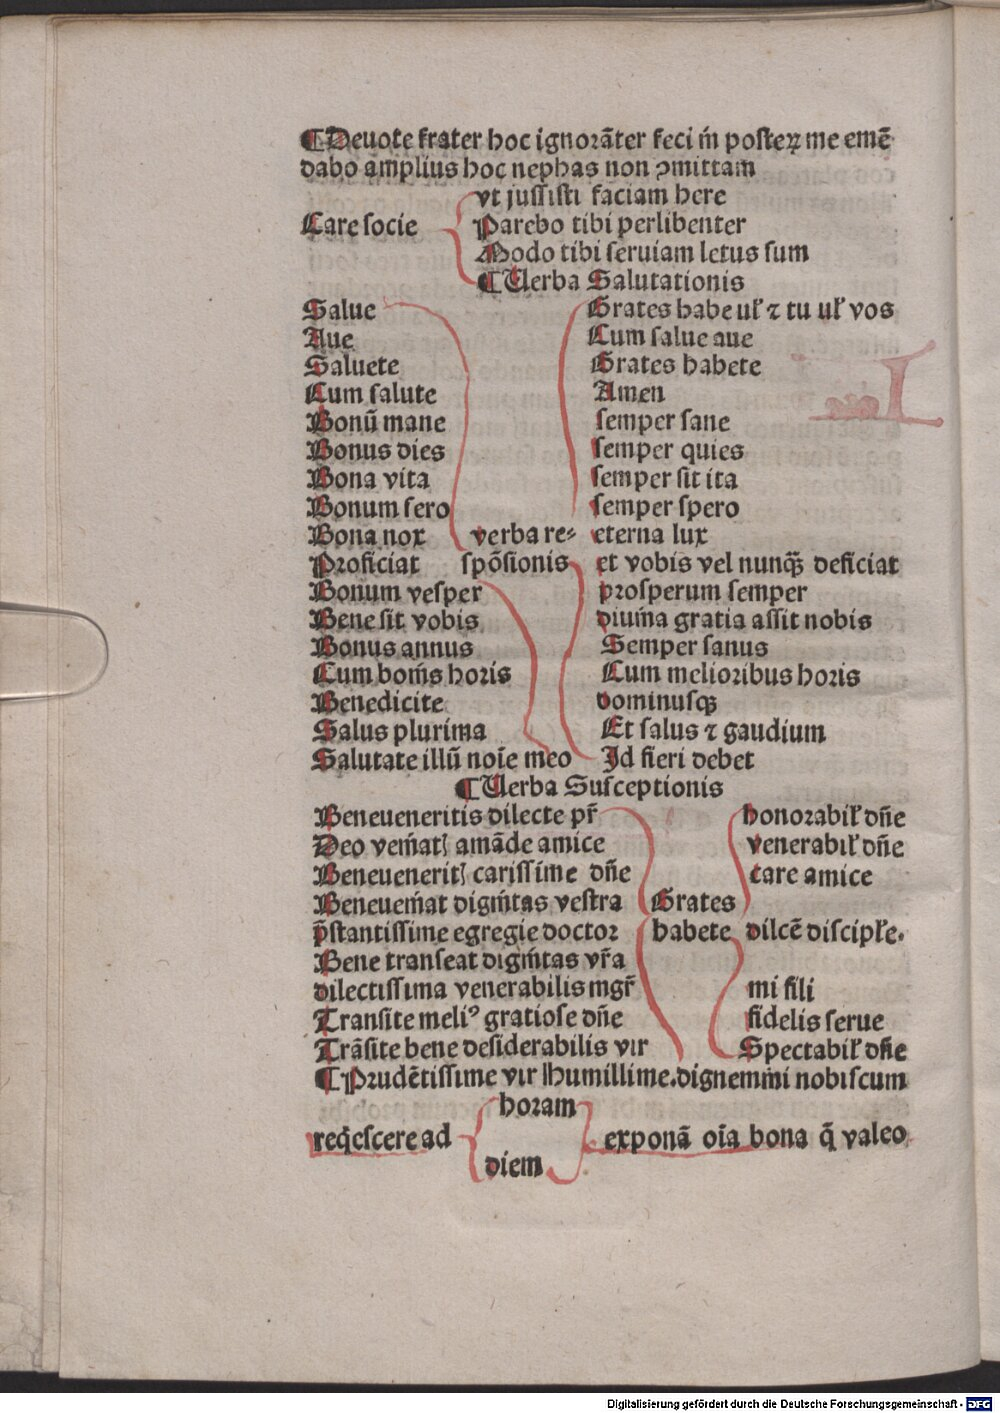 ¶Deuote frater hoc ignorãter feci m̃ posteꝝ me emẽ
dabo amplius hoc nephas non ꝯmittam
vt jussisti faciam here
Care socie Parebo tibi perlibenter
Modo tibi seruiam letus sum
¶Uerba Salutationis
Salue Grates habe ul̉ ⁊ tu ul̉ vos
Aue Cum salue aue
Saluete Grates habete
Cum salute Amen
Bonũ mane semper sane
Bonus dies semper quies
Bona vita semper sit ita
Bonum sero semper spero
Bona nox verba re⸗ eterna lux
Proficiat spõsionis et vobis vel nunꝙ̃ deficiat
Bonum vesper prosperum semper
Bene sit vobis diuina gratia assit nobis
Bonus annus Semper sanus
Cum bonis horis Cum melioribus horis
Benedicite dominusꝙ
Salus plurima Et salus ⁊ gaudium
Salutate illũ noĩe meo Id fieri debet
¶Uerba Susceptionis
Beneueneritis dilecte pr̃ honorabil̉ dñe
Deo veniatꝭ amãde amice venerabil̉ dñe
Beneueneritꝭ carissime dñe care amice
Beneueniat dignitas vestra Grates
p̃stantissime egregie doctor habete dilcẽ discipl̉e.
Bene transeat dignitas vr̃a
dilectissima venerabilis mgr̃ mi fili
Transite meliꝰ gratiose dñe fidelis serue
Trãsite bene desiderabilis vir Spectabil̉ dñe
¶Prudẽtissime vir humillime.dignemini nobiscum
horam
req̃escere ad exponã oĩa bona q̃ valeo
diem
Digitalisierung gefördert durch die Deutsche Forschungsgemeinschaft - DFG